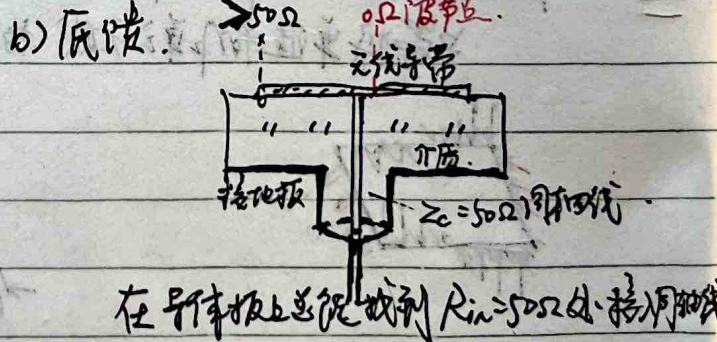 b) 底馈.
>50Ω
0Ω 波节点.
天线导带
介质.
接地板
Zc=50Ω 同轴线.
在导体板上总能找到 Rin=50Ω处. 接入同轴线